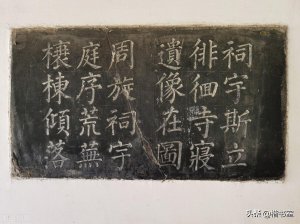 祠宇斯立
徘徊寺寢
遺像在圖
周旋祠宇
庭序荒蕪
榱棟傾落
头条